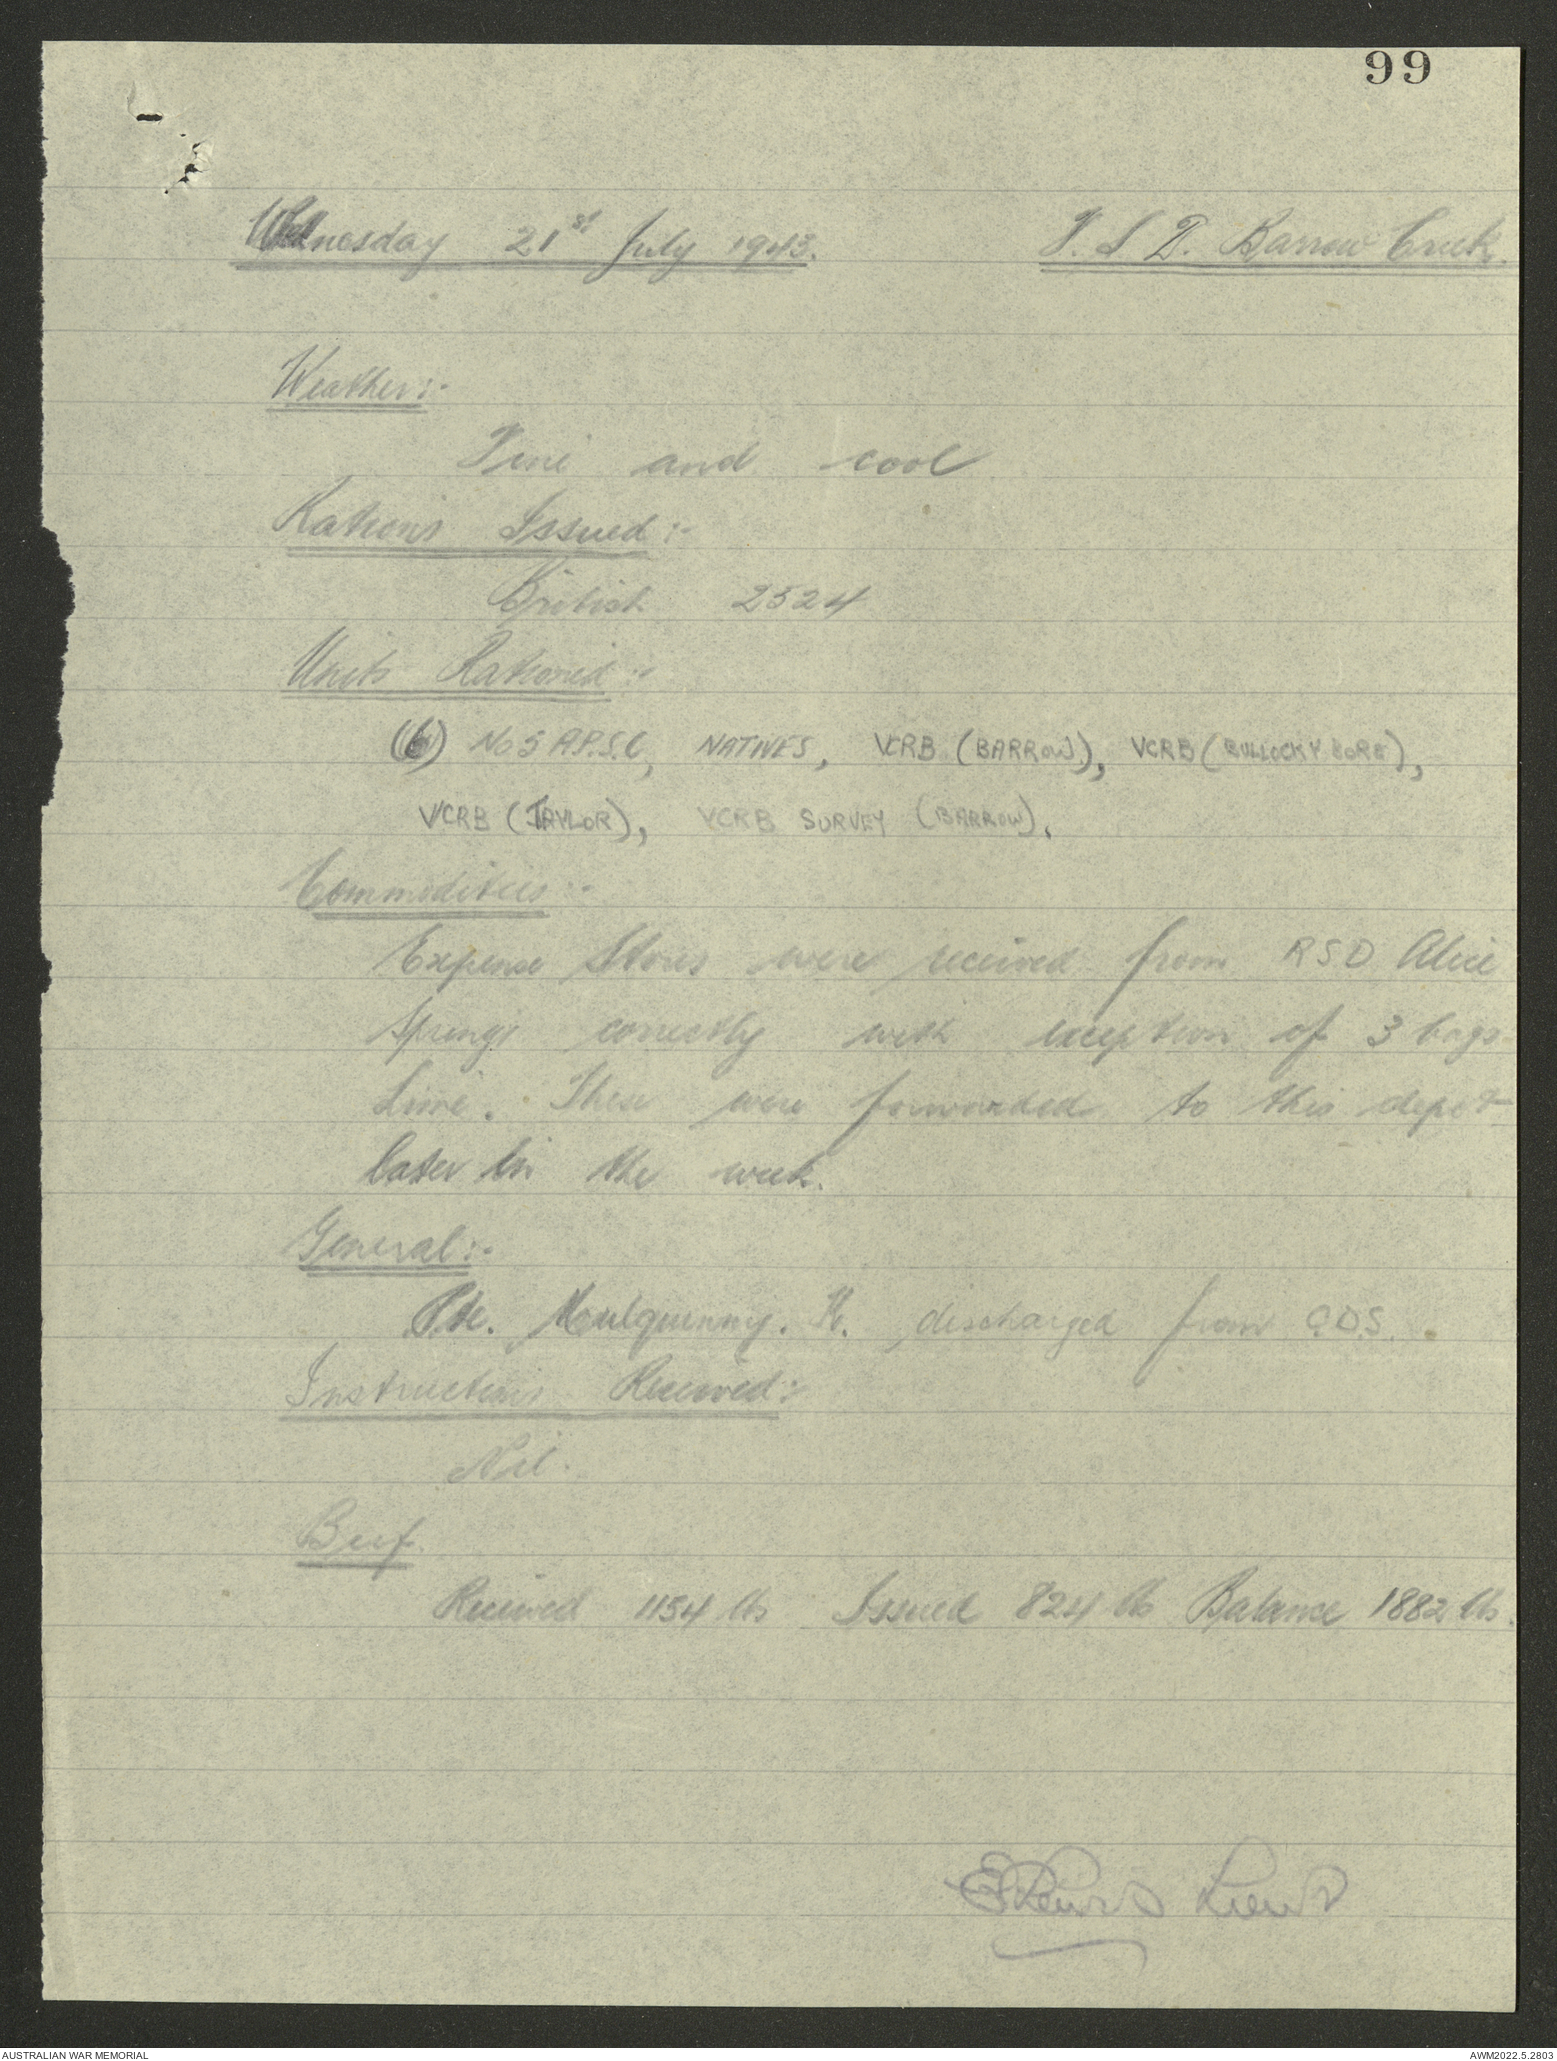 99
Wednesday 21st July 1943. F. S D. Barrow Creek.
Weather:-
Fine and cool
Rations Issued:-
British 2524
Units Rationed:-
(6) No 5 A.P.S.C, NATIVES, VCRB (BARROW), VCRB (BULLOCKY BORE),
VCRB (TAYLOR), VCRB SURVEY (BARROW).
Commodities:-
Expense Stores were received from RSD Alice
Springs correctly with exception of 3 bags
Lime. These were forwarded to this depot
later in the week.
General:-
Pte. Mulquinny. K. discharged from C.D.S.
Instructions Received:-
Nil.
Beef
Received 1154 lbs Issued 824 lbs Balance 1882 lbs.
Lieut
AUSTRALIAN WAR MEMORIAL AWM2022.5.2803